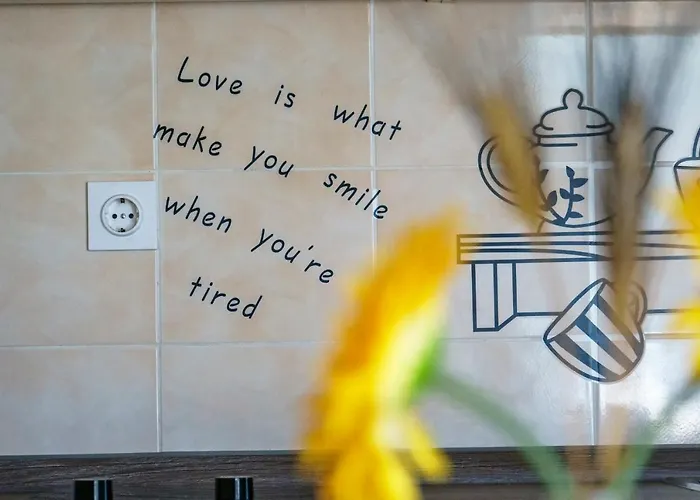 Love is what
make you smile
when you're
tired